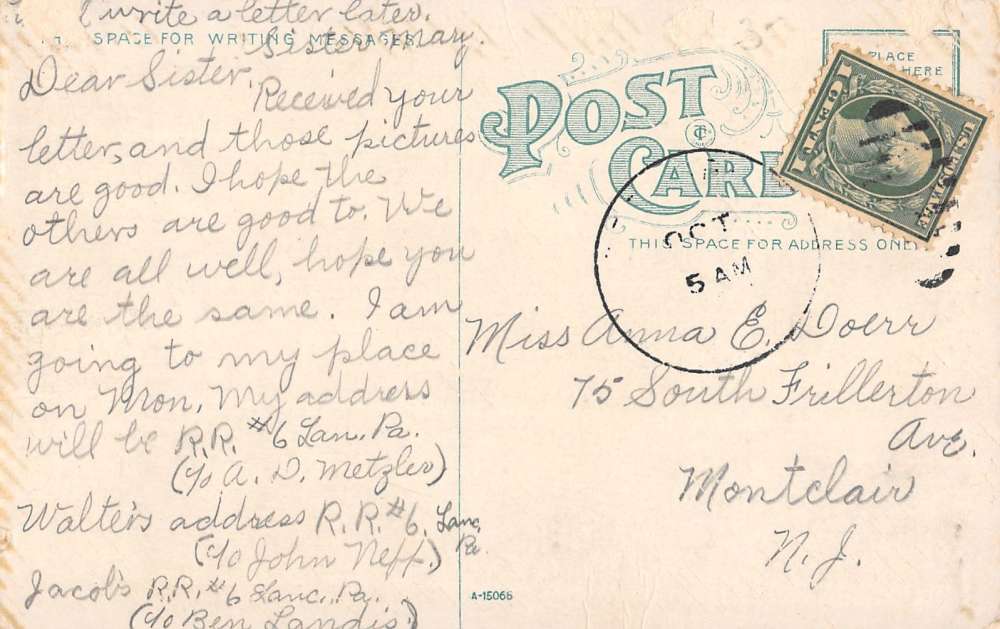 I write a letter later.
Sister Mary.
SPACE FOR WRITING MESSAGES
Dear Sister,
Received your
letter, and those pictures
are good. I hope the
others are good to. We
are all well, hope you
are the same. I am
going to my place
on Mon. My address
will be R.R. #6 Lan. Pa.
(c/o A. D. Metzler)
Walter's address R.R. #6. Lanc.
Pa.
(c/o John Neff.)
Jacob's R.R. #6 Lanc. Pa.
(c/o Ben Landis.)
POST
CARD
THIS SPACE FOR ADDRESS ONLY
PLACE
HERE
OCT
5 AM
Miss Anna E. Doerr
75 South Frillerton
Ave.
Montclair
N. J.
A-15066